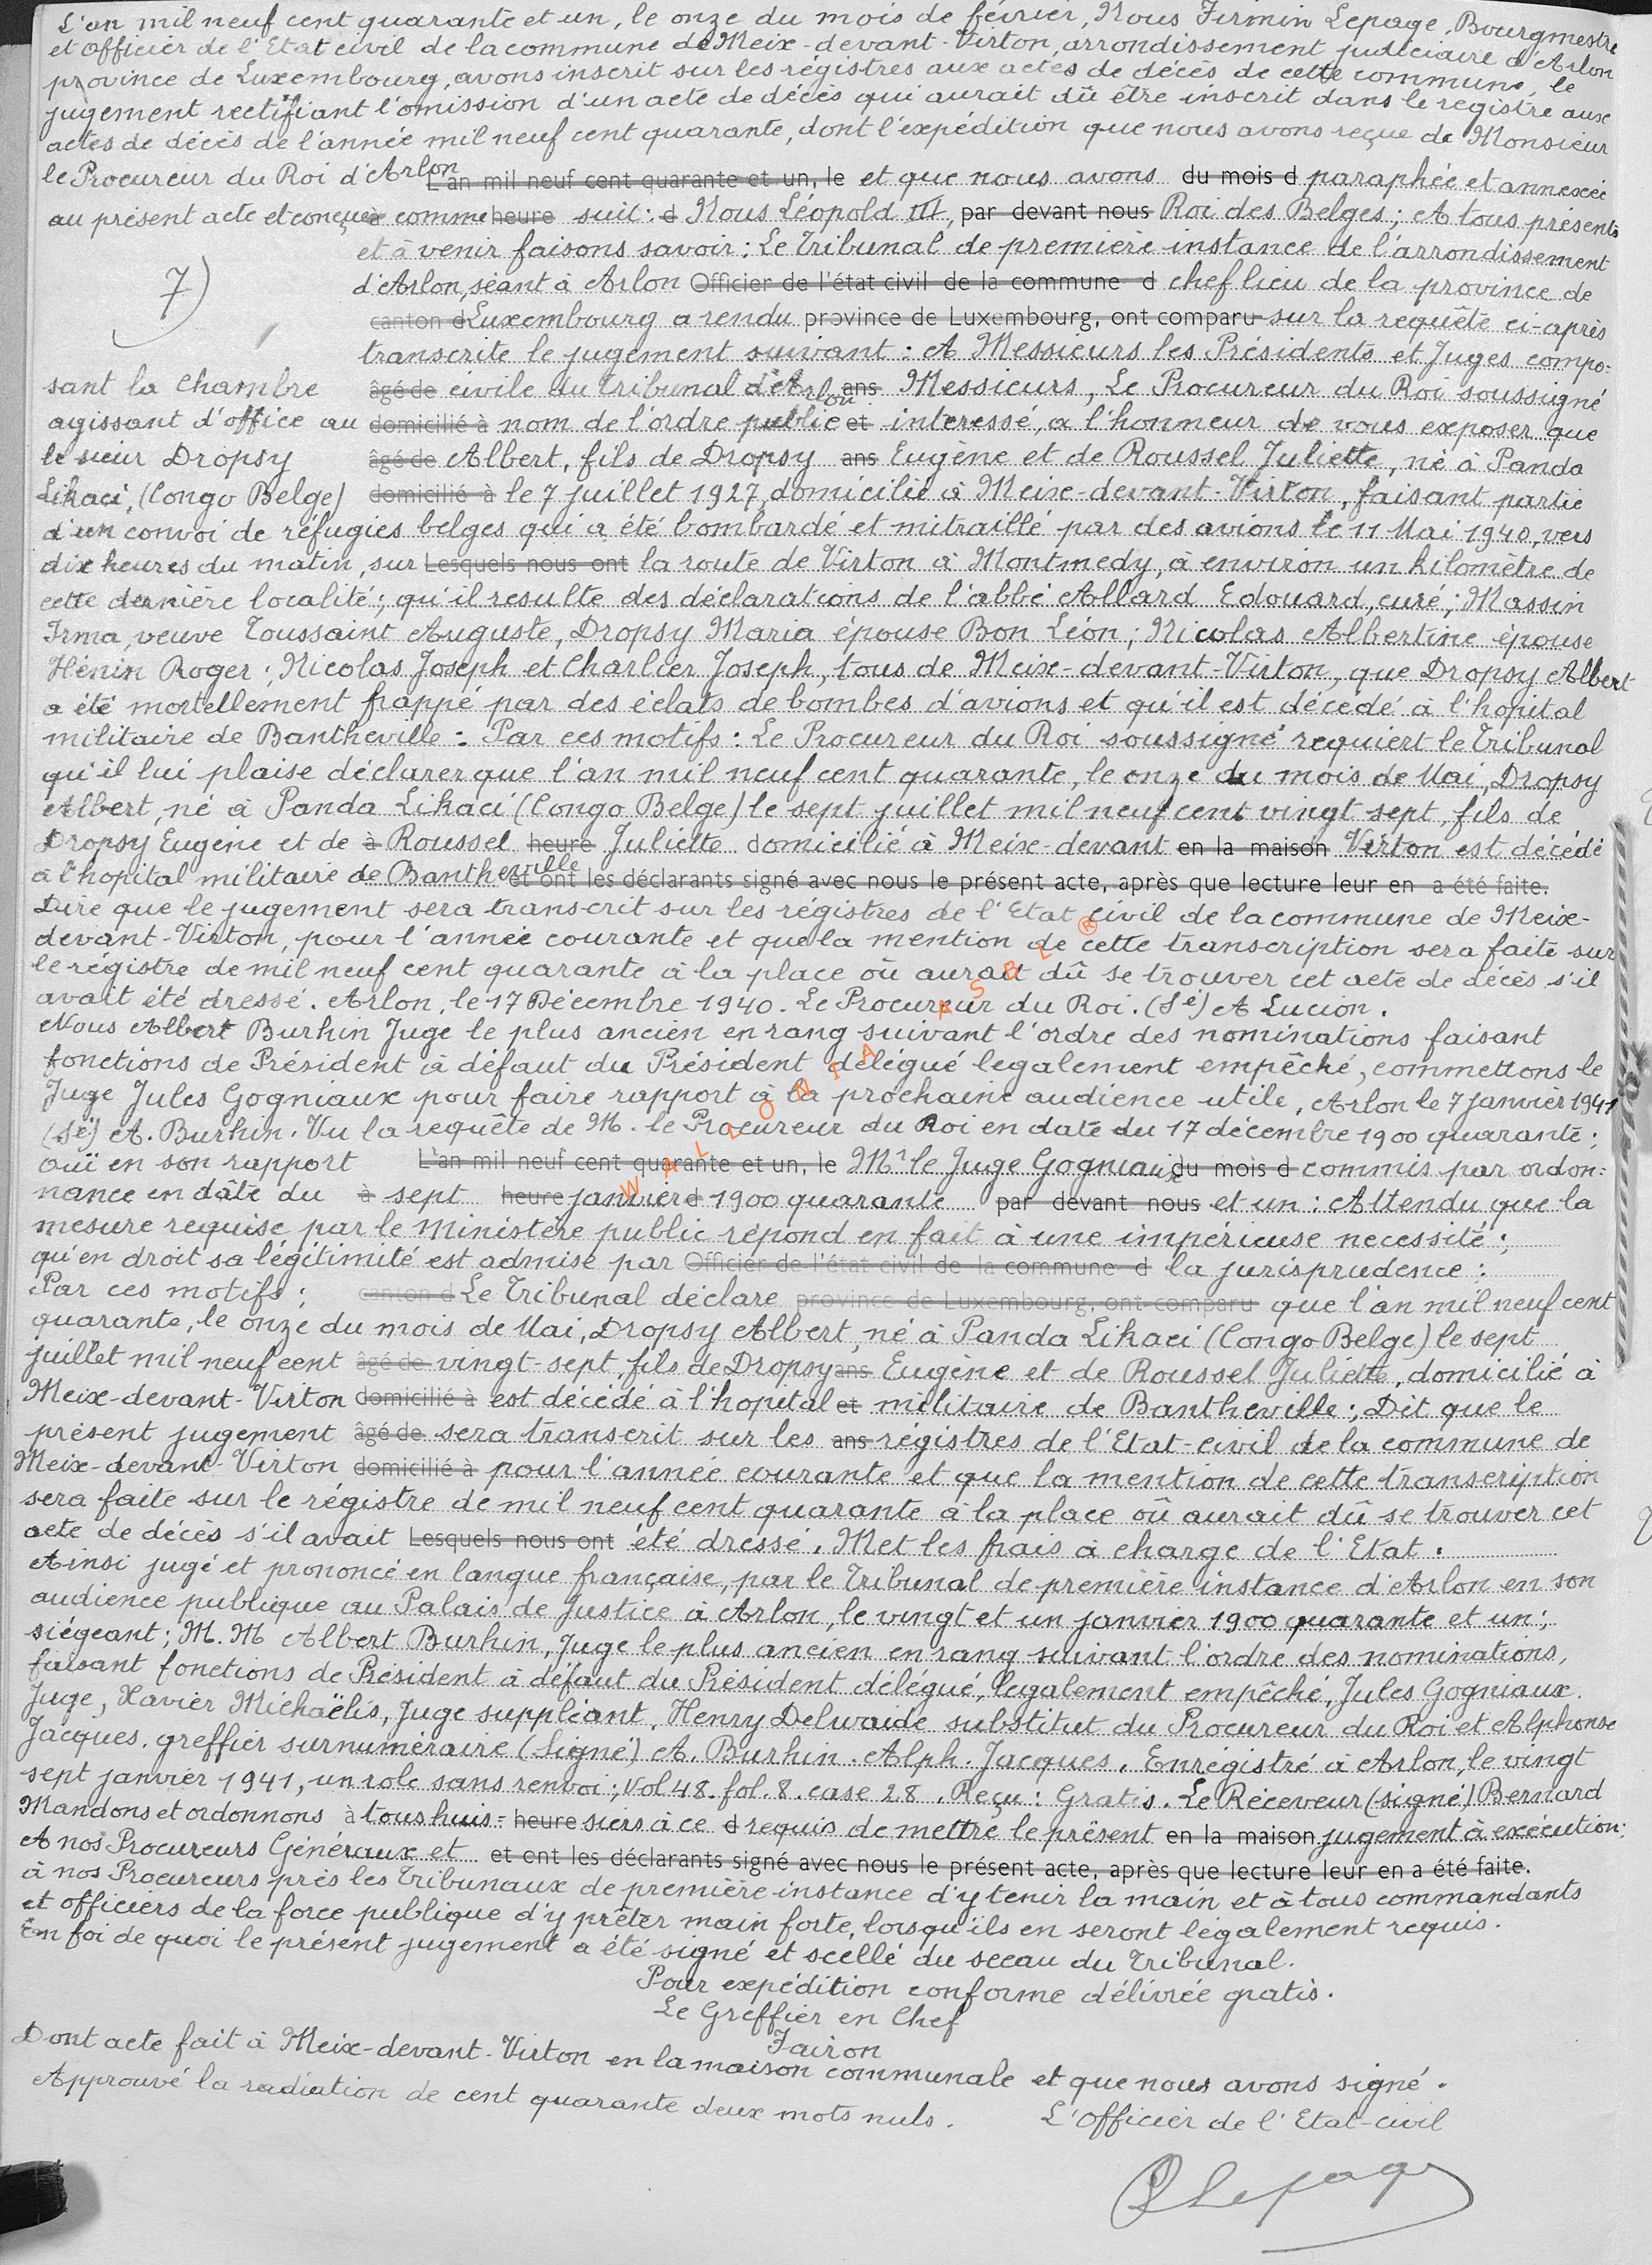 L'an mil neuf cent quarante et un, le onze du mois de février, Nous Firmin Lepage, Bourgmestre
et Officier de l'Etat civil de la commune de Meix-devant-Virton, arrondissement judiciaire d'Arlon
province de Luxembourg, avons inscrit sur les régistres aux actes de décès de cette commune, le
jugement rectifiant l'omission d'un acte de décès qui aurait dû être inscrit dans le registre aux
actes de décès de l'année mil neuf cent quarante, dont l'expédition que nous avons reçue de Monsieur
le Procureur du Roi d'Arlon L'an mil neuf cent quarante et un, le et que nous avons du mois d paraphée et annexée
au présent acte et conçue à comme heure suit: d Nous Léopold III, par devant nous Roi des Belges; A tous présents
et à venir faisons savoir: Le Tribunal de première instance de l'arrondissement
7) d'Arlon, séant à Arlon Officier de l'état civil de la commune d chef lieu de la province de
canton d Luxembourg a rendu province de Luxembourg, ont comparu sur la requête ci-après
transcrite le jugement suivant: A Messieurs les Présidents et Juges compo-
sant la Chambre âgé de civile du Tribunal d'Arlon ans Messieurs, Le Procureur du Roi soussigné
agissant d'office au domicilié à nom de l'ordre public et interessé, a l'honneur de vous exposer que
le sieur Dropsy âgé de Albert, fils de Dropsy ans Eugène et de Roussel Juliette, né à Panda
Likaci, (Congo Belge) domicilié à le 7 juillet 1927, domicilié à Meix-devant-Virton, faisant partie
d'un convoi de réfugies belges qui a été bombardé et mitraillé par des avions le 11 Mai 1940, vers
dix heures du matin, sur Lesquels nous ont la route de Virton à Montmedy, à environ un kilomètre de
cette dernière localité; qu'il resulte des déclarations de l'abbé Allard Edouard, curé; Massin
Irma, veuve Toussaint Auguste, Dropsy Maria épouse Bon Léon; Nicolas Albertine épouse
Hénin Roger; Nicolas Joseph et Charlier Joseph, tous de Meix-devant-Virton, que Dropsy Albert
a été mortellement frappé par des éclats de bombes d'avions et qu'il est décédé à l'hopital
militaire de Bantheville: Par ces motifs: Le Procureur du Roi soussigné requiert le Tribunal
qu'il lui plaise déclarer que l'an mil neuf cent quarante, le onze du mois de Mai, Dropsy
Albert, né à Panda Likaci (Congo Belge) le sept juillet mil neuf cent vingt sept, fils de
Dropsy Eugène et de à Roussel heure Juliette domicilié à Meix-devant en la maison Virton est décédé
à l'hopital militaire de Bantheville et ont les déclarants signé avec nous le présent acte, après que lecture leur en a été faite.
Dire que le jugement sera transcrit sur les régistres de l'Etat civil de la commune de Meix-
devant-Virton, pour l'année courante et que la mention de cette transcription sera faite sur
le régistre de mil neuf cent quarante à la place où aurait dû se trouver cet acte de décès s'il
avait été dressé. Arlon, le 17 Décembre 1940. Le Procureur du Roi. (Sé) A Lucion.
Nous Albert Burhin Juge le plus ancien en rang suivant l'ordre des nominations faisant
fonctions de Président à défaut du Président délégué legalement empêché, commettons le
Juge Jules Gogniaux pour faire rapport à la prochaine audience utile, Arlon le 7 janvier 1941
(Sé) A. Burhin. Vu la requête de M. le Procureur du Roi en date du 17 décembre 1900 quarante;
ouï en son rapport L'an mil neuf cent quarante et un, le Mr le Juge Gogniaux du mois d commis par ordon-
nance en dâte du à sept heure janvier d 1900 quarante par devant nous et un: Attendu que la
mesure requise par le Ministère public répond en fait à une impérieuse necessité;
qu'en droit sa légitimité est admise par Officier de l'état civil de la commune d la jurisprudence:
Par ces motifs: canton d Le Tribunal déclare province de Luxembourg, ont comparu que l'an mil neuf cent
quarante, le onze du mois de Mai, Dropsy Albert, né à Panda Likaci (Congo Belge) le sept
juillet mil neuf cent âgé de vingt-sept, fils de Dropsy ans Eugène et de Roussel Juliette, domicilié à
Meix-devant-Virton domicilié à est décédé à l'hopital et militaire de Bantheville; Dit que le
présent jugement âgé de sera transcrit sur les ans régistres de l'Etat-civil de la commune de
Meix-devant-Virton domicilié à pour l'année courante et que la mention de cette transcription
sera faite sur le régistre de mil neuf cent quarante à la place où aurait dû se trouver cet
acte de décès s'il avait Lesquels nous ont été dressé. Met les frais à charge de l'Etat.
Ainsi jugé et prononcé en langue française, par le Tribunal de première instance d'Arlon en son
audience publique au Palais de Justice à Arlon, le vingt et un janvier 1900 quarante et un;
siégeant; M.M Albert Burhin, Juge le plus ancien en rang suivant l'ordre des nominations,
faisant fonctions de Président à défaut du Président délégué, legalement empêché, Jules Gogniaux.
Juge, Xavier Michaëlis, Juge suppléant, Henry Delwaide substitut du Procureur du Roi et Alphonse
Jacques. greffier surnuméraire (Signé) A. Burhin. Alph. Jacques. Enrégistré à Arlon, le vingt
sept janvier 1941, un role sans renvoi; Vol 48. fol. 8. case 28. Reçu: Gratis. Le Réceveur (signé) Bernard
Mandons et ordonnons à tous huis- heure siers à ce d requis de mettre le présent en la maison jugement à exécution:
A nos Procureurs Généraux et et ont les déclarants signé avec nous le présent acte, après que lecture leur en a été faite.
à nos Procureurs près les Tribunaux de première instance d'y tenir la main et à tous commandants
et officiers de la force publique d'y prêter main forte, lorsqu'ils en seront légalement requis.
En foi de quoi le présent jugement a été signé et scellé du sceau du Tribunal.
Pour expédition conforme délivrée gratis.
Le Greffier en Chef
Fairon
Dont acte fait à Meix-devant-Virton en la maison communale et que nous avons signé.
Approuvé la radiation de cent quarante deux mots nuls.
L'Officier de l'Etat-civil
Lepage
WALLONIA ASBL ®